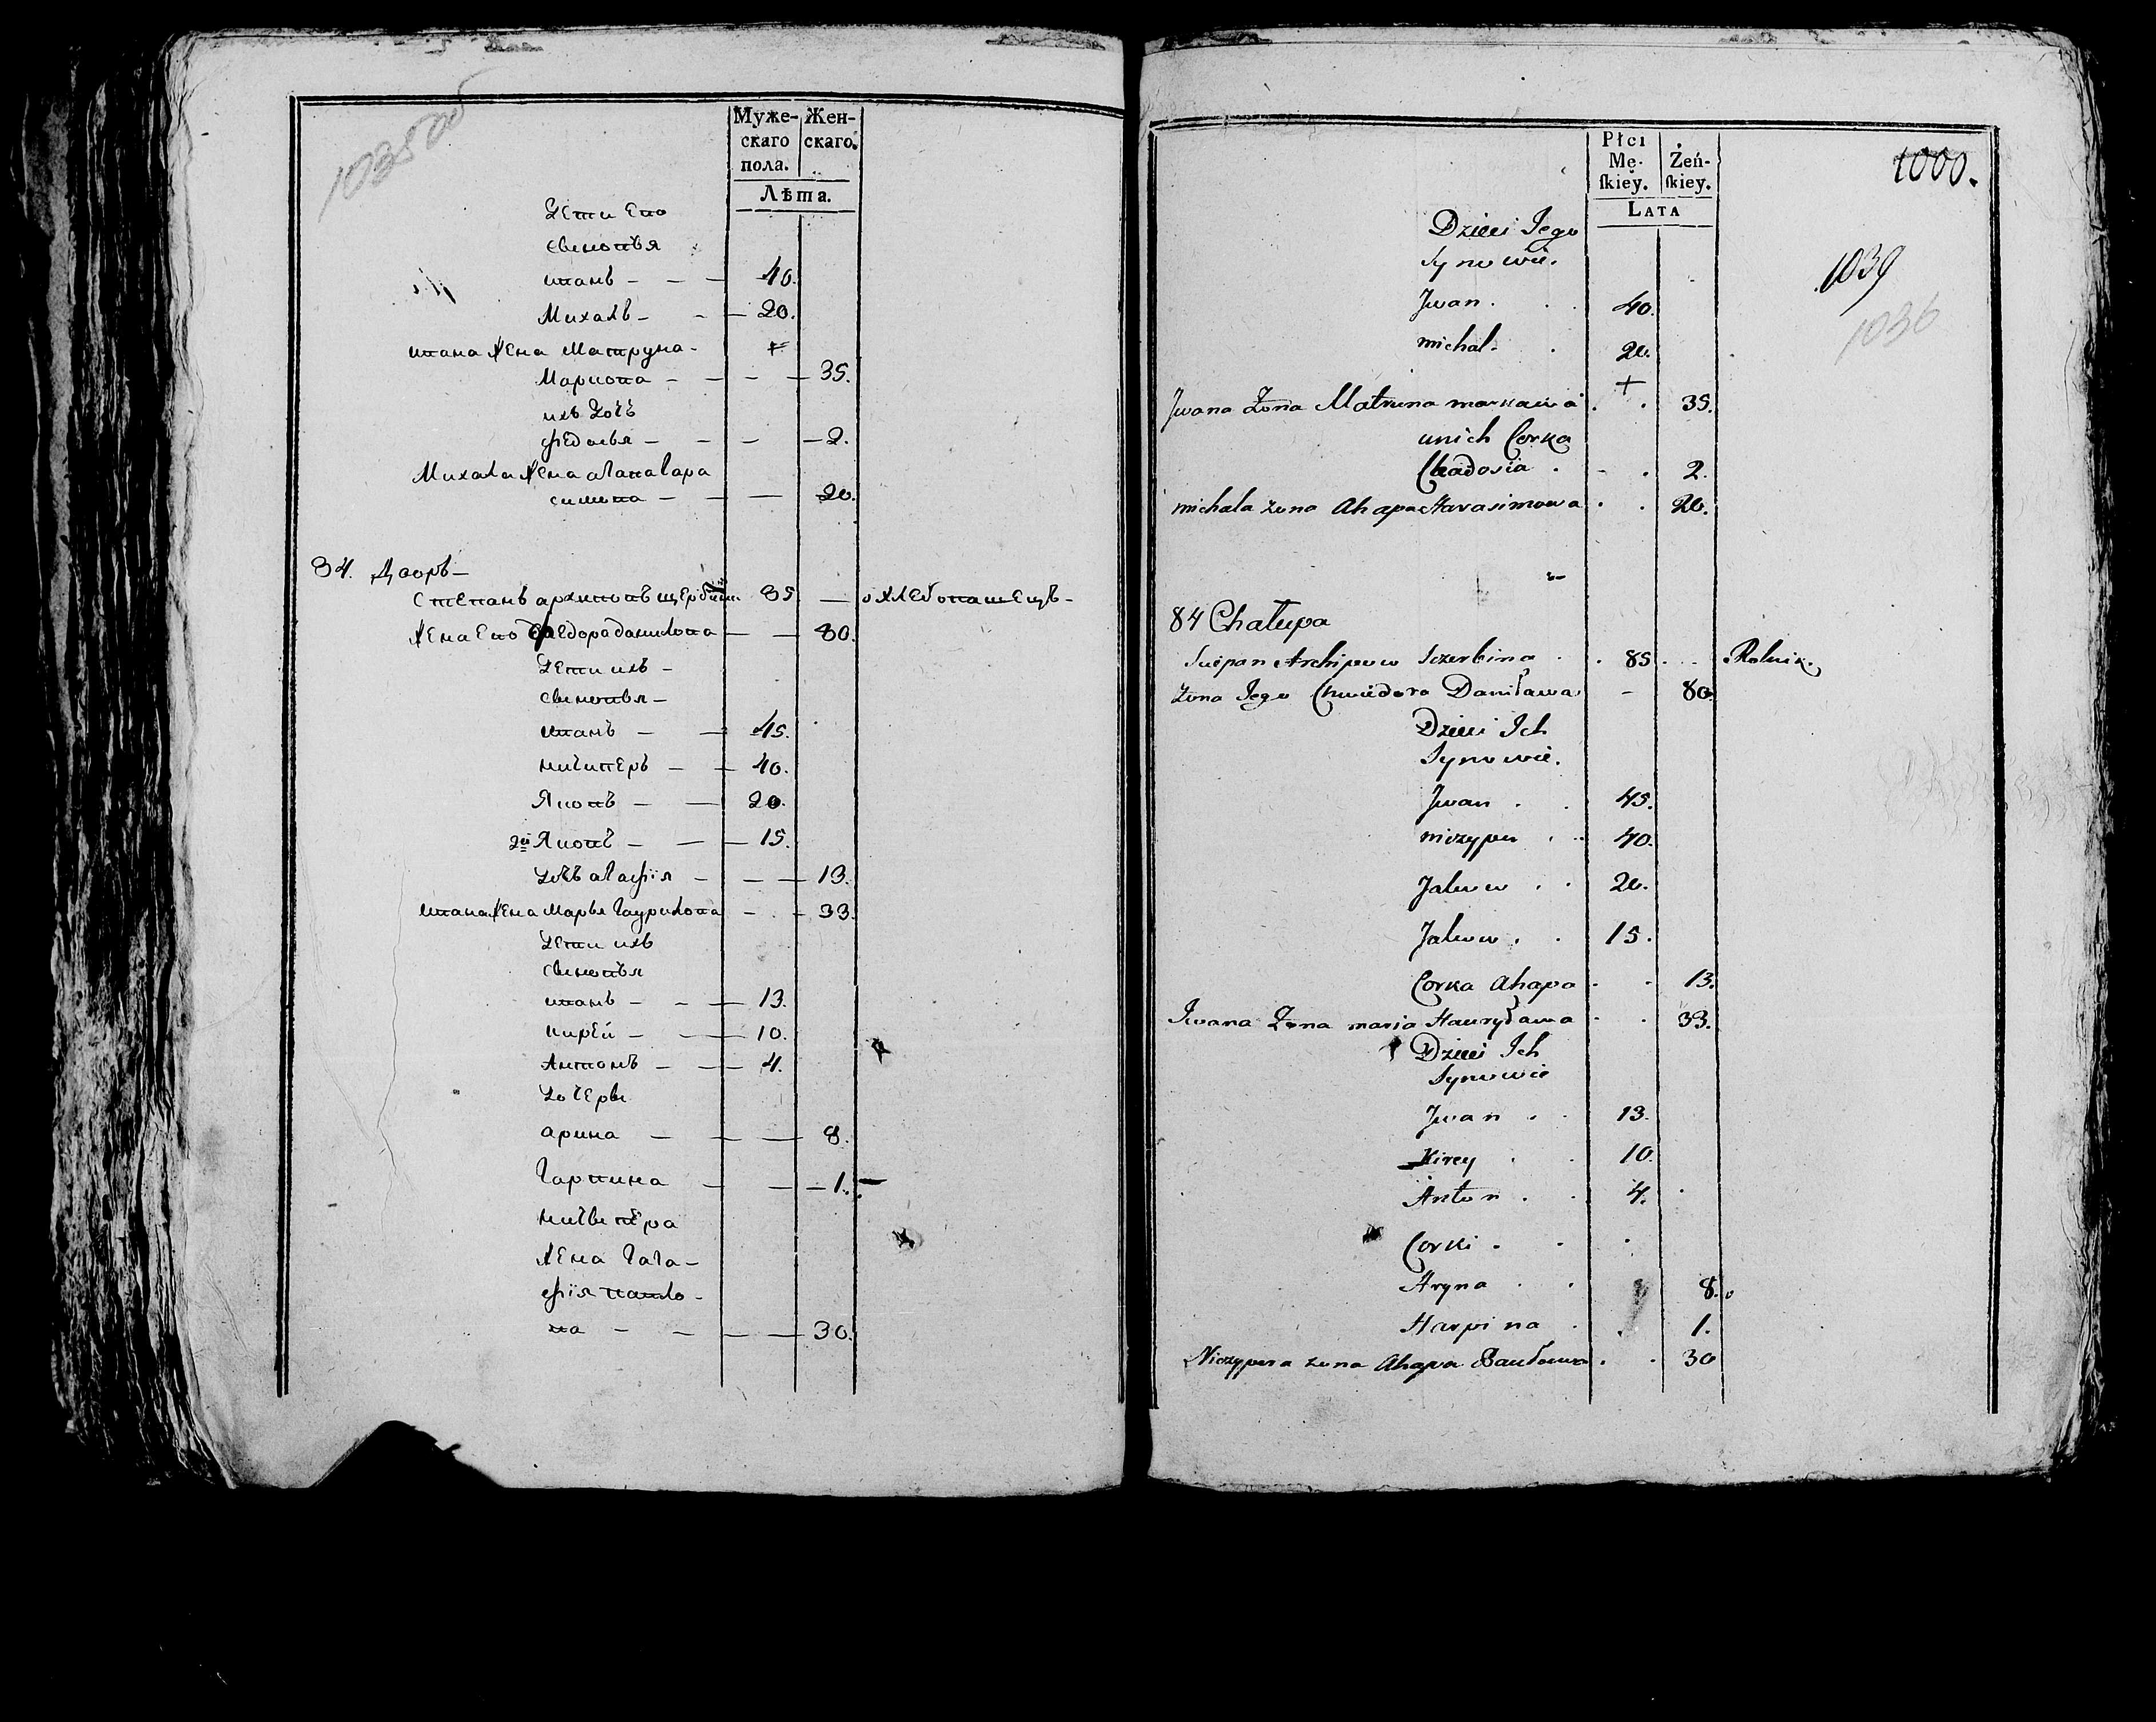 1035об
Муже-
скаго
пола.
Жен-
скаго.
Лѣта.
Дети Ево
Сыновья
иванъ — — — 40.
Михалъ — — — 20.
ивана жена Матруна - +
Маркова — — — 35.
ихъ дочь
федосья — — — 2.
Михала жена агапа гара
симова — — — 20.
34. Дворъ —
Степанъ архиповъ щербина 85 — хлебопашецъ —
жена Ево Федора данилова — — 80.
Дети ихъ —
Сыновья —
иванъ — — 45.
ничиперъ — — 40.
Яковъ — — 20.
2й Яковъ — — — 15.
дочь агафія — — — 13.
ивана жена Марья гаурилова — — 33.
Дети ихъ
Сыновья
иванъ — — — 13.
кирей — — — 10.
Антонъ — — — 4.
дочеры
арина — — — 8.
гарпина — — — 1.
ничыпера
жена гага-
фія павло-
ва — — — — 30.
Płci
Mę-
ſkieỹ.
Żeń-
ſkiey.
LATA
1000.
1039
1036
Dzieci Jego
Synowie.
Jwan . . 40.
michal . . 20.
+
Jwana Zona Matruna markawa . . 35.
unich Corka
Chadosia . - . 2.
michala zona Ahapa Harasimowa . . 20.
84 Chałupa
Sciepan Archipow Sczerbina . . 85 . . . Rolnik.
zona Jego Chwiedora Daniławа - 80.
Dzieci Ich
Synowie.
Jwan . . 45.
niczyper . . 40.
Jakow . . 20.
Jakow . . 15.
Corka Ahapa . . 13.
Iwana Zona maria Hauryława . . 33.
Dzieci Ich
Synowie
Jwan . . 13.
Kirey . . 10.
Anton . . 4.
Corki . . .
Aryna . . 8.
Harpina . . 1.
Niczypera zona Ahapa Pauława . . 30